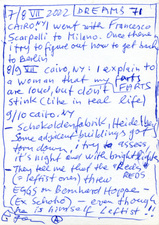 7/8 VII 2002 DREAMS 71
CAIRO, NY I went with Francesco
Scarpelli to Milano. Once there
i try to figure out how to get back
to Berlin
8/9 VII cairo, NY: I explain to
a woman that my farts
are loud, but don't FARTS
stink (like in real life)
9/10 cairo, NY
- Schokoladenfabrik, Heidelberg
Some adjacent buildings got
torn down, i try to assess,
it's night and with bright lights
They tell me that the "Reds"
(= leftist ones) threw REDS
Eggs on Bernhard Hoppe -
(Ex Scholo) - even though
he is himself leftist!!